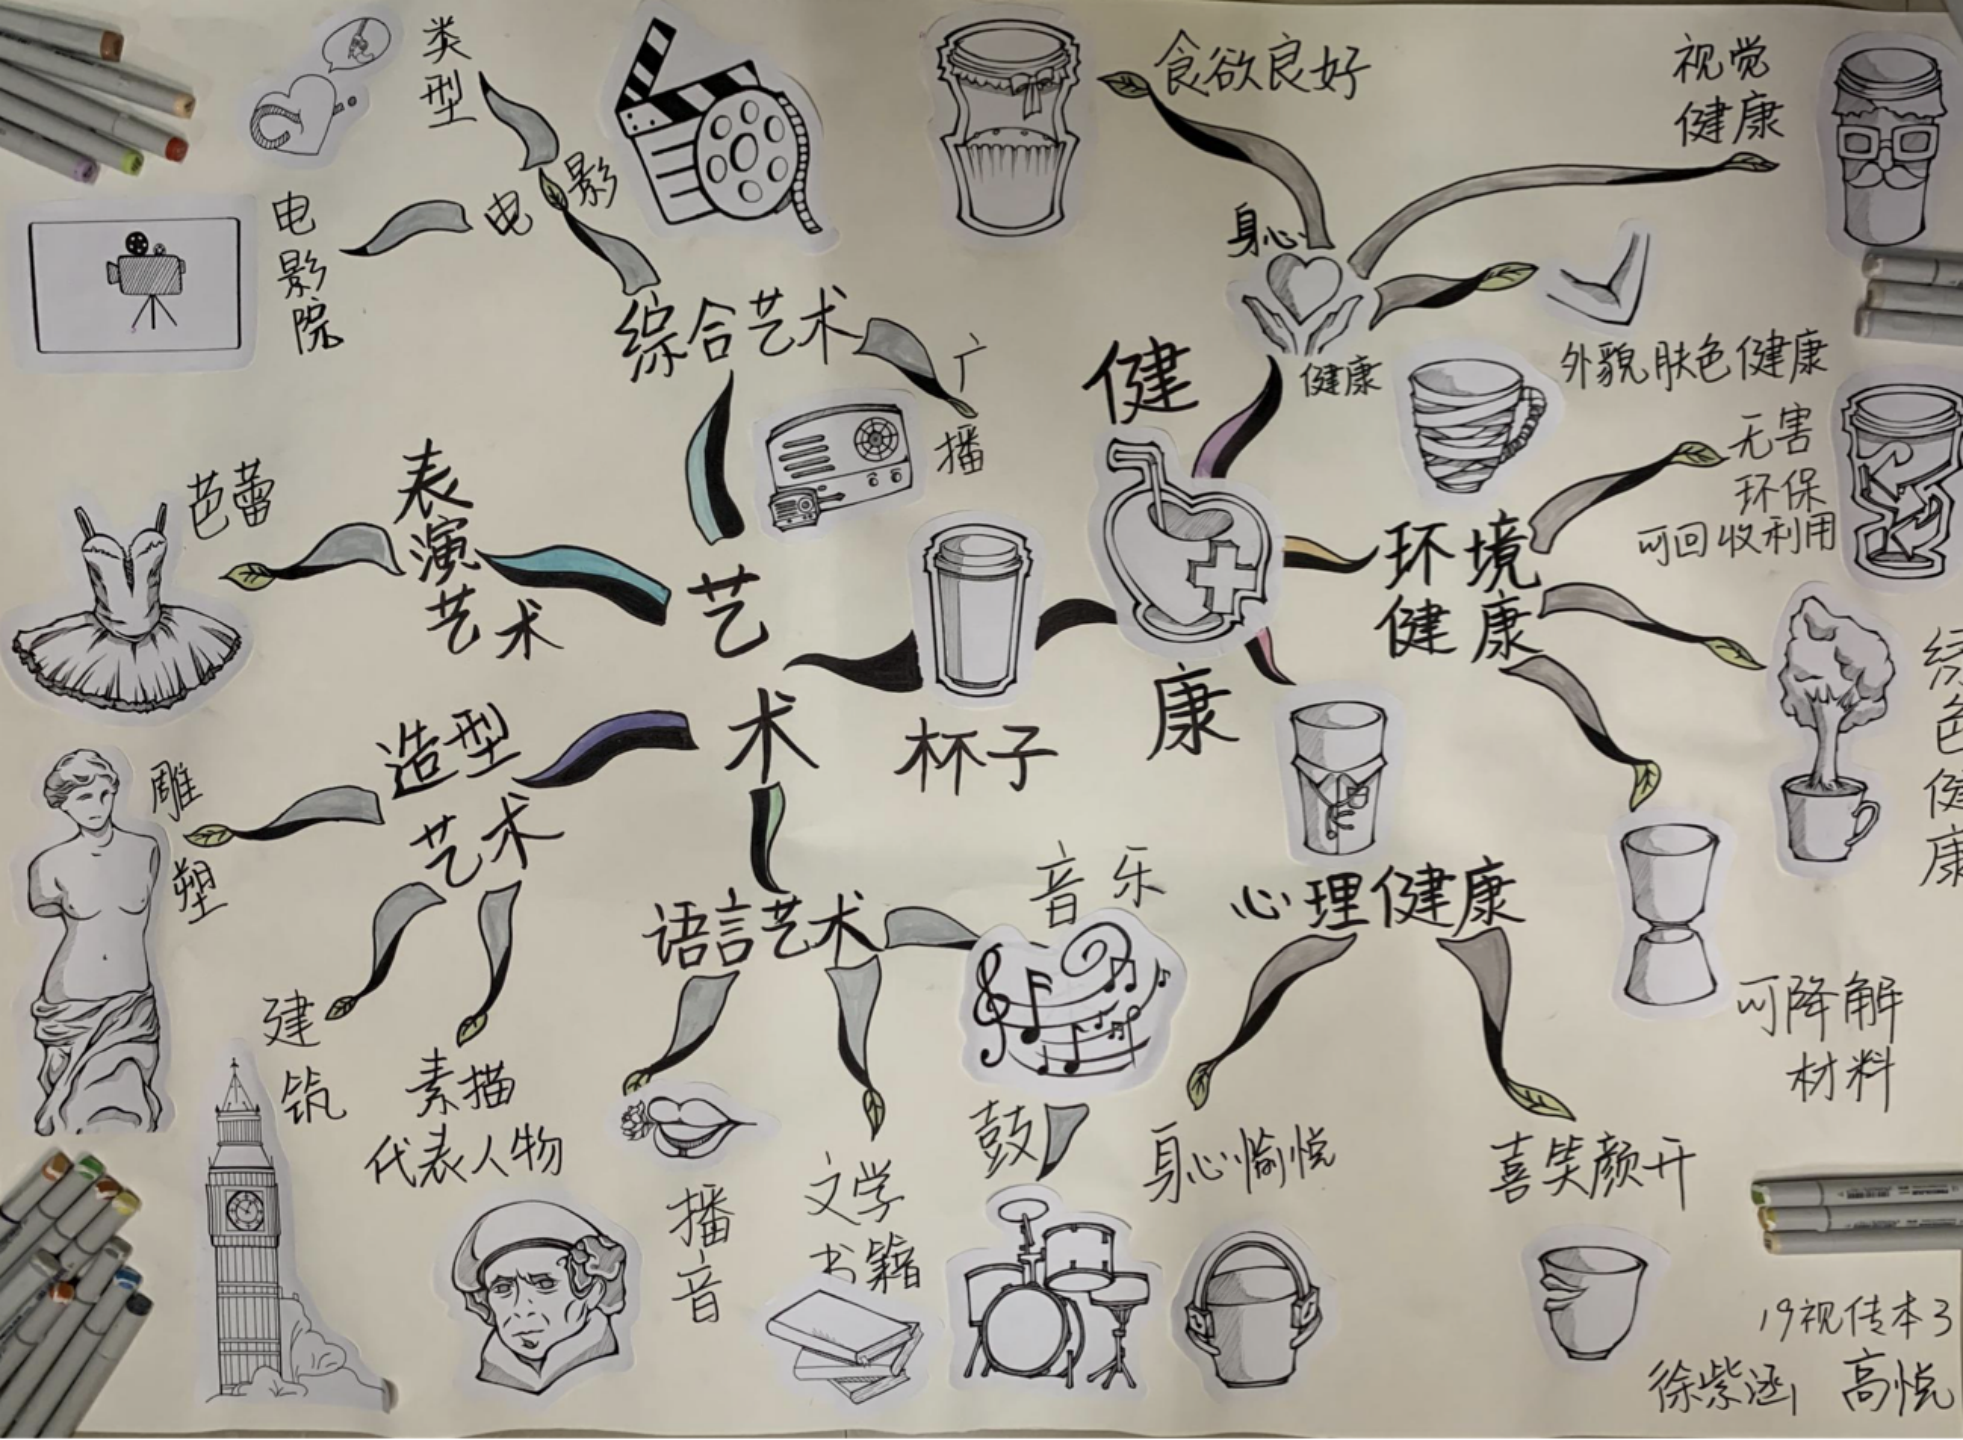 类型
电影院
电影
综合艺术
广播
芭蕾
表演艺术
艺术
造型艺术
雕塑
建筑
素描
代表人物
语言艺术
播音
文学
书籍
音乐
鼓
杯子
健康
身心
健康
食欲良好
视觉
健康
外貌肤色健康
环境
健康
无害
环保
可回收利用
绿色健康
可降解
材料
心理健康
身心愉悦
喜笑颜开
19视传本3
徐紫涵 高悦